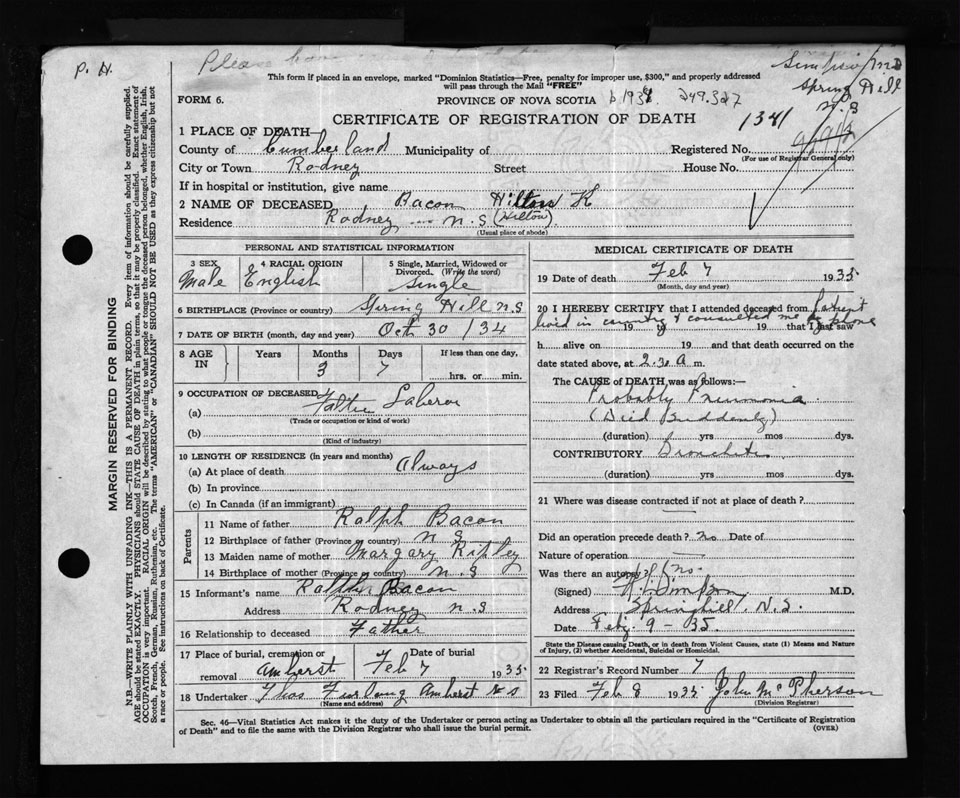 P. H. Please
Simpson MD
Spring Hill
N S
This form if placed in an envelope, marked "Dominion Statistics—Free, penalty for improper use, $300," and properly addressed
will pass through the Mail "FREE"
FORM 6.
PROVINCE OF NOVA SCOTIA 249.327
CERTIFICATE OF REGISTRATION OF DEATH
1341
1 PLACE OF DEATH
County of Cumberland Municipality of Registered No.
(For use of Registrar General only)
City or Town Rodney Street House No.
If in hospital or institution, give name
2 NAME OF DECEASED Bacon Hilton K
Residence Rodney N.S (Hilton)
(Usual place of abode)
PERSONAL AND STATISTICAL INFORMATION
3 SEX Male
4 RACIAL ORIGIN English
5 Single, Married, Widowed or Divorced. (Write the word) Single
6 BIRTHPLACE (Province or country) Spring Hill N.S
7 DATE OF BIRTH (month, day and year) Oct 30 /34
8 AGE IN Years Months 3 Days 7 If less than one day, hrs. or min.
9 OCCUPATION OF DECEASED
(a) Father Laberor
(Trade or occupation or kind of work)
(b)
(Kind of industry)
10 LENGTH OF RESIDENCE (in years and months)
(a) At place of death Always
(b) In province
(c) In Canada (if an immigrant)
Parents
11 Name of father Ralph Bacon
12 Birthplace of father (Province or country) N S
13 Maiden name of mother Margary Ripley
14 Birthplace of mother (Province or country) N.S
15 Informant's name Ralph Bacon
Address Rodney N.S
16 Relationship to deceased Father
17 Place of burial, cremation or removal Amherst Date of burial Feb 7 1935
18 Undertaker Thos Furlong Amherst N S
(Name and address)
MEDICAL CERTIFICATE OF DEATH
19 Date of death Feb 7 1935
(Month, day and year)
20 I HEREBY CERTIFY that I attended deceased from patient
lived in country & consulted me by phone 19 to 19 that I last saw
h alive on 19 and that death occurred on the
date stated above, at 2.30 A m.
The CAUSE OF DEATH was as follows:—
Probably Pneumonia
(Died Suddenly)
(duration) yrs mos dys.
CONTRIBUTORY Bronchitis
(duration) yrs. mos. dys.
21 Where was disease contracted if not at place of death?
Did an operation precede death? No Date of
Nature of operation
Was there an autopsy? No
(Signed) Simpson M.D.
Address Springhill N.S.
Date Feby. 9 - 35.
State the Disease causing Death, or in death from Violent Causes, state (1) Means and Nature
of Injury, (2) whether Accidental, Suicidal or Homicidal.
22 Registrar's Record Number 7
23 Filed Feb 8 1935 John McPherson
(Division Registrar)
Sec. 46—Vital Statistics Act makes it the duty of the Undertaker or person acting as Undertaker to obtain all the particulars required in the "Certificate of Registration
of Death" and to file the same with the Division Registrar who shall issue the burial permit.
(OVER)
MARGIN RESERVED FOR BINDING
N.B.—WRITE PLAINLY WITH UNFADING INK—THIS IS A PERMANENT RECORD. Every item of information should be carefully supplied.
AGE should be stated EXACTLY. PHYSICIANS should STATE CAUSE OF DEATH in plain terms, so that it may be properly classified. Exact statement of
OCCUPATION is very important. RACIAL ORIGIN will be described by stating to what people or tongue the deceased person belonged, whether English, Irish,
Scotch, French, German, Russian, Ruthenian, etc. The terms "AMERICAN" or "CANADIAN" SHOULD NOT BE USED as they express citizenship but not
a race or people. See instructions on back of Certificate.